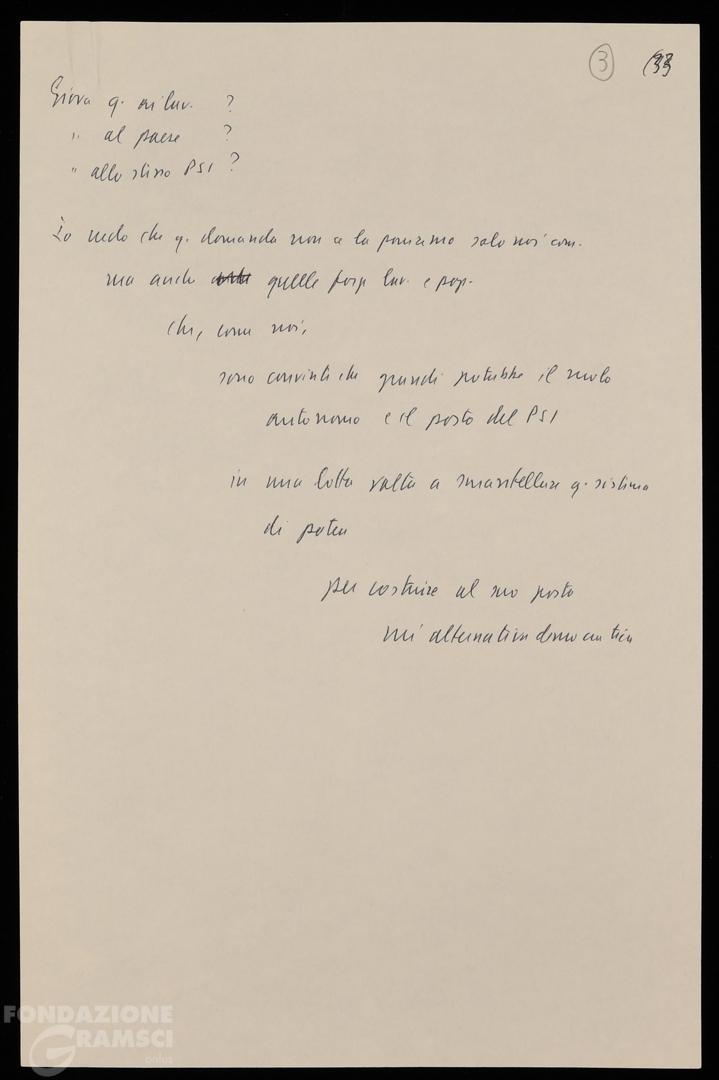 3 33
Giova q. ai lav. ?
" al paese ?
" allo stesso PSI ?
Io vedo che q. domanda non ce la poniamo solo noi com.
ma anche quelle forze lav. e pop.
che, come noi,
sono convinti che grandi potrebbe il ruolo
autonomo e il posto del PSI
in una lotta volta a smantellare q. sistema
di potere
per costruire al suo posto
un'alternativa democratica
FONDAZIONE
GRAMSCI
onlus